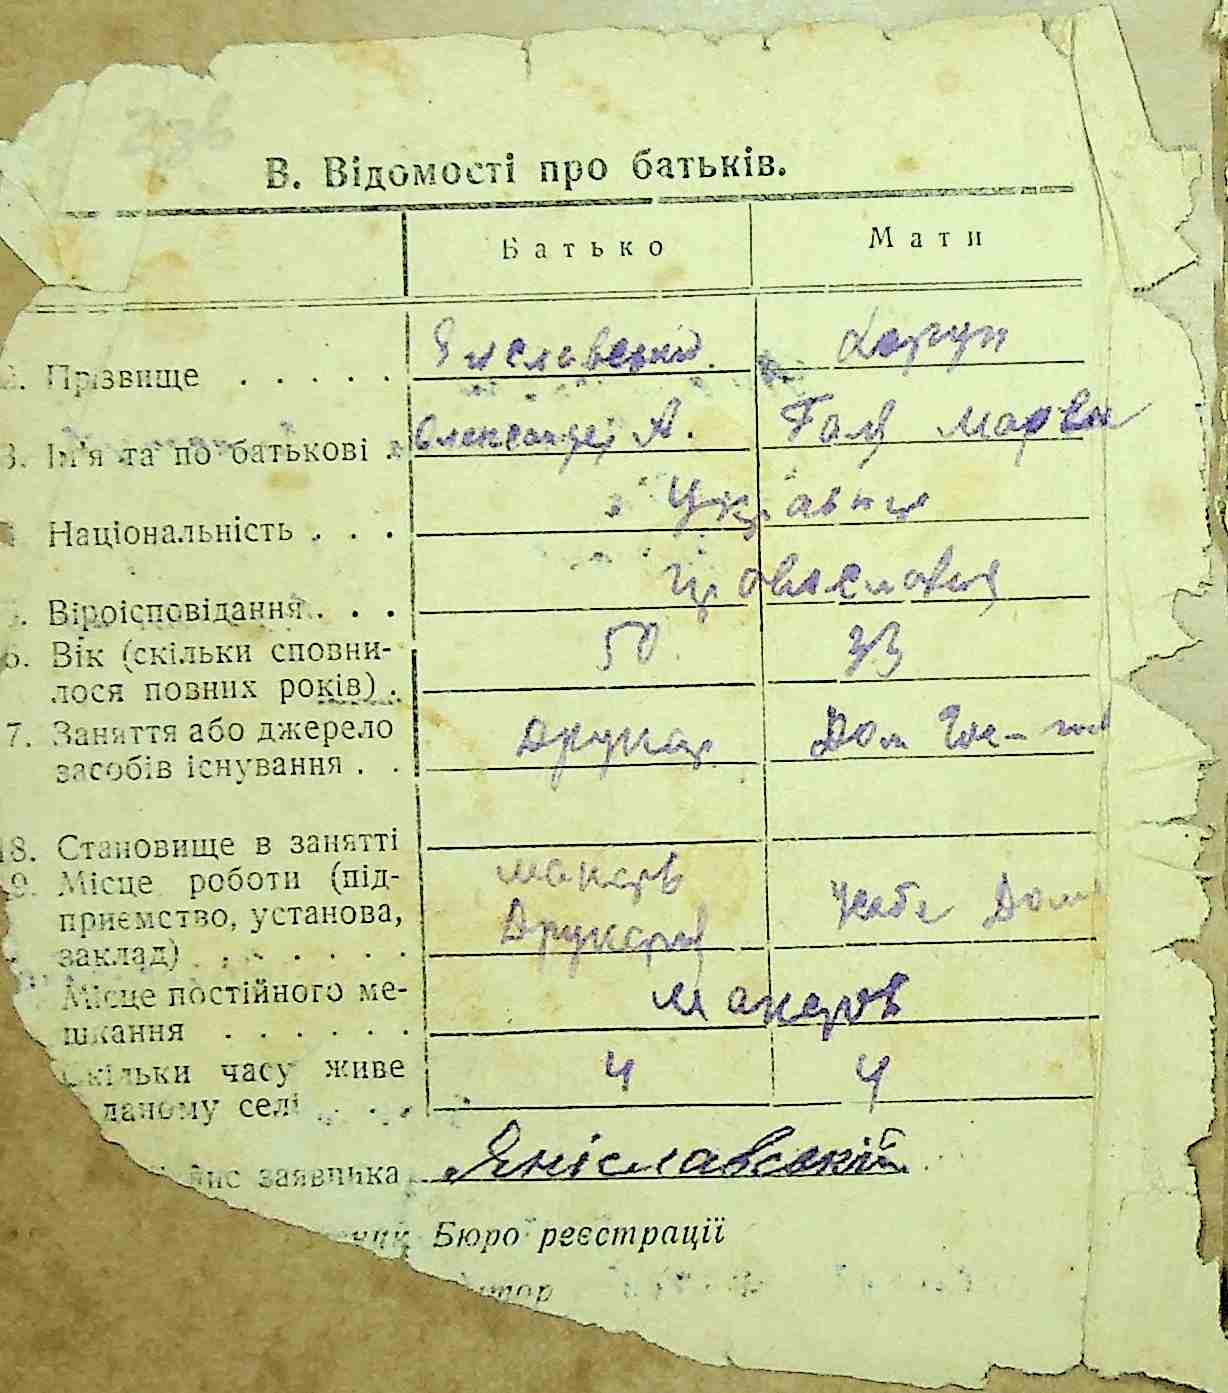 В. Відомості про батьків.
Батько Мати
Прізвище . . . . . Яниславский
3. Ім'я та по батькові . Олександр А. Галя
Національність . . . Українці
Віроісповідання . . . православні
6. Вік (скільки сповни-
лося повних років) . 50 33
7. Заняття або джерело
засобів існування . . Друкар Дом
18. Становище в занятті
9. Місце роботи (під-
приємство, установа,
заклад) . . . . . . Макарів Друкарня
Місце постійного ме-
шкання . . . . . . Макаров
Скільки часу живе
даному селі . . . . 4 4
заявника Яніславський
Бюро реєстрації